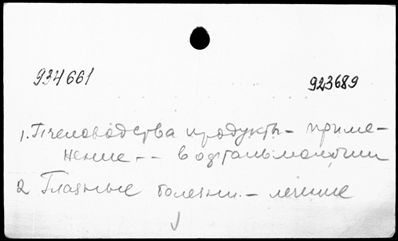 934661
923689
1. Пчеловодства продукты - приме-
нение -- в офтальмологии
2 Глазные болезни. - лечение